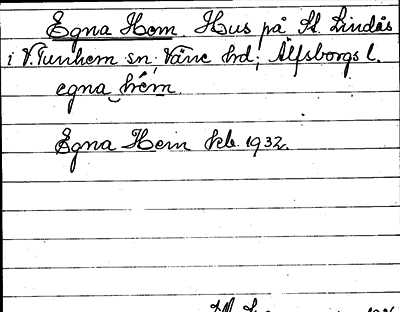 Egna Hem. Hus på St. Lindås
i V. Tunhem sn, Väne hd; Älfsborgs l.
egna hém
Egna Hem kkb 1932.